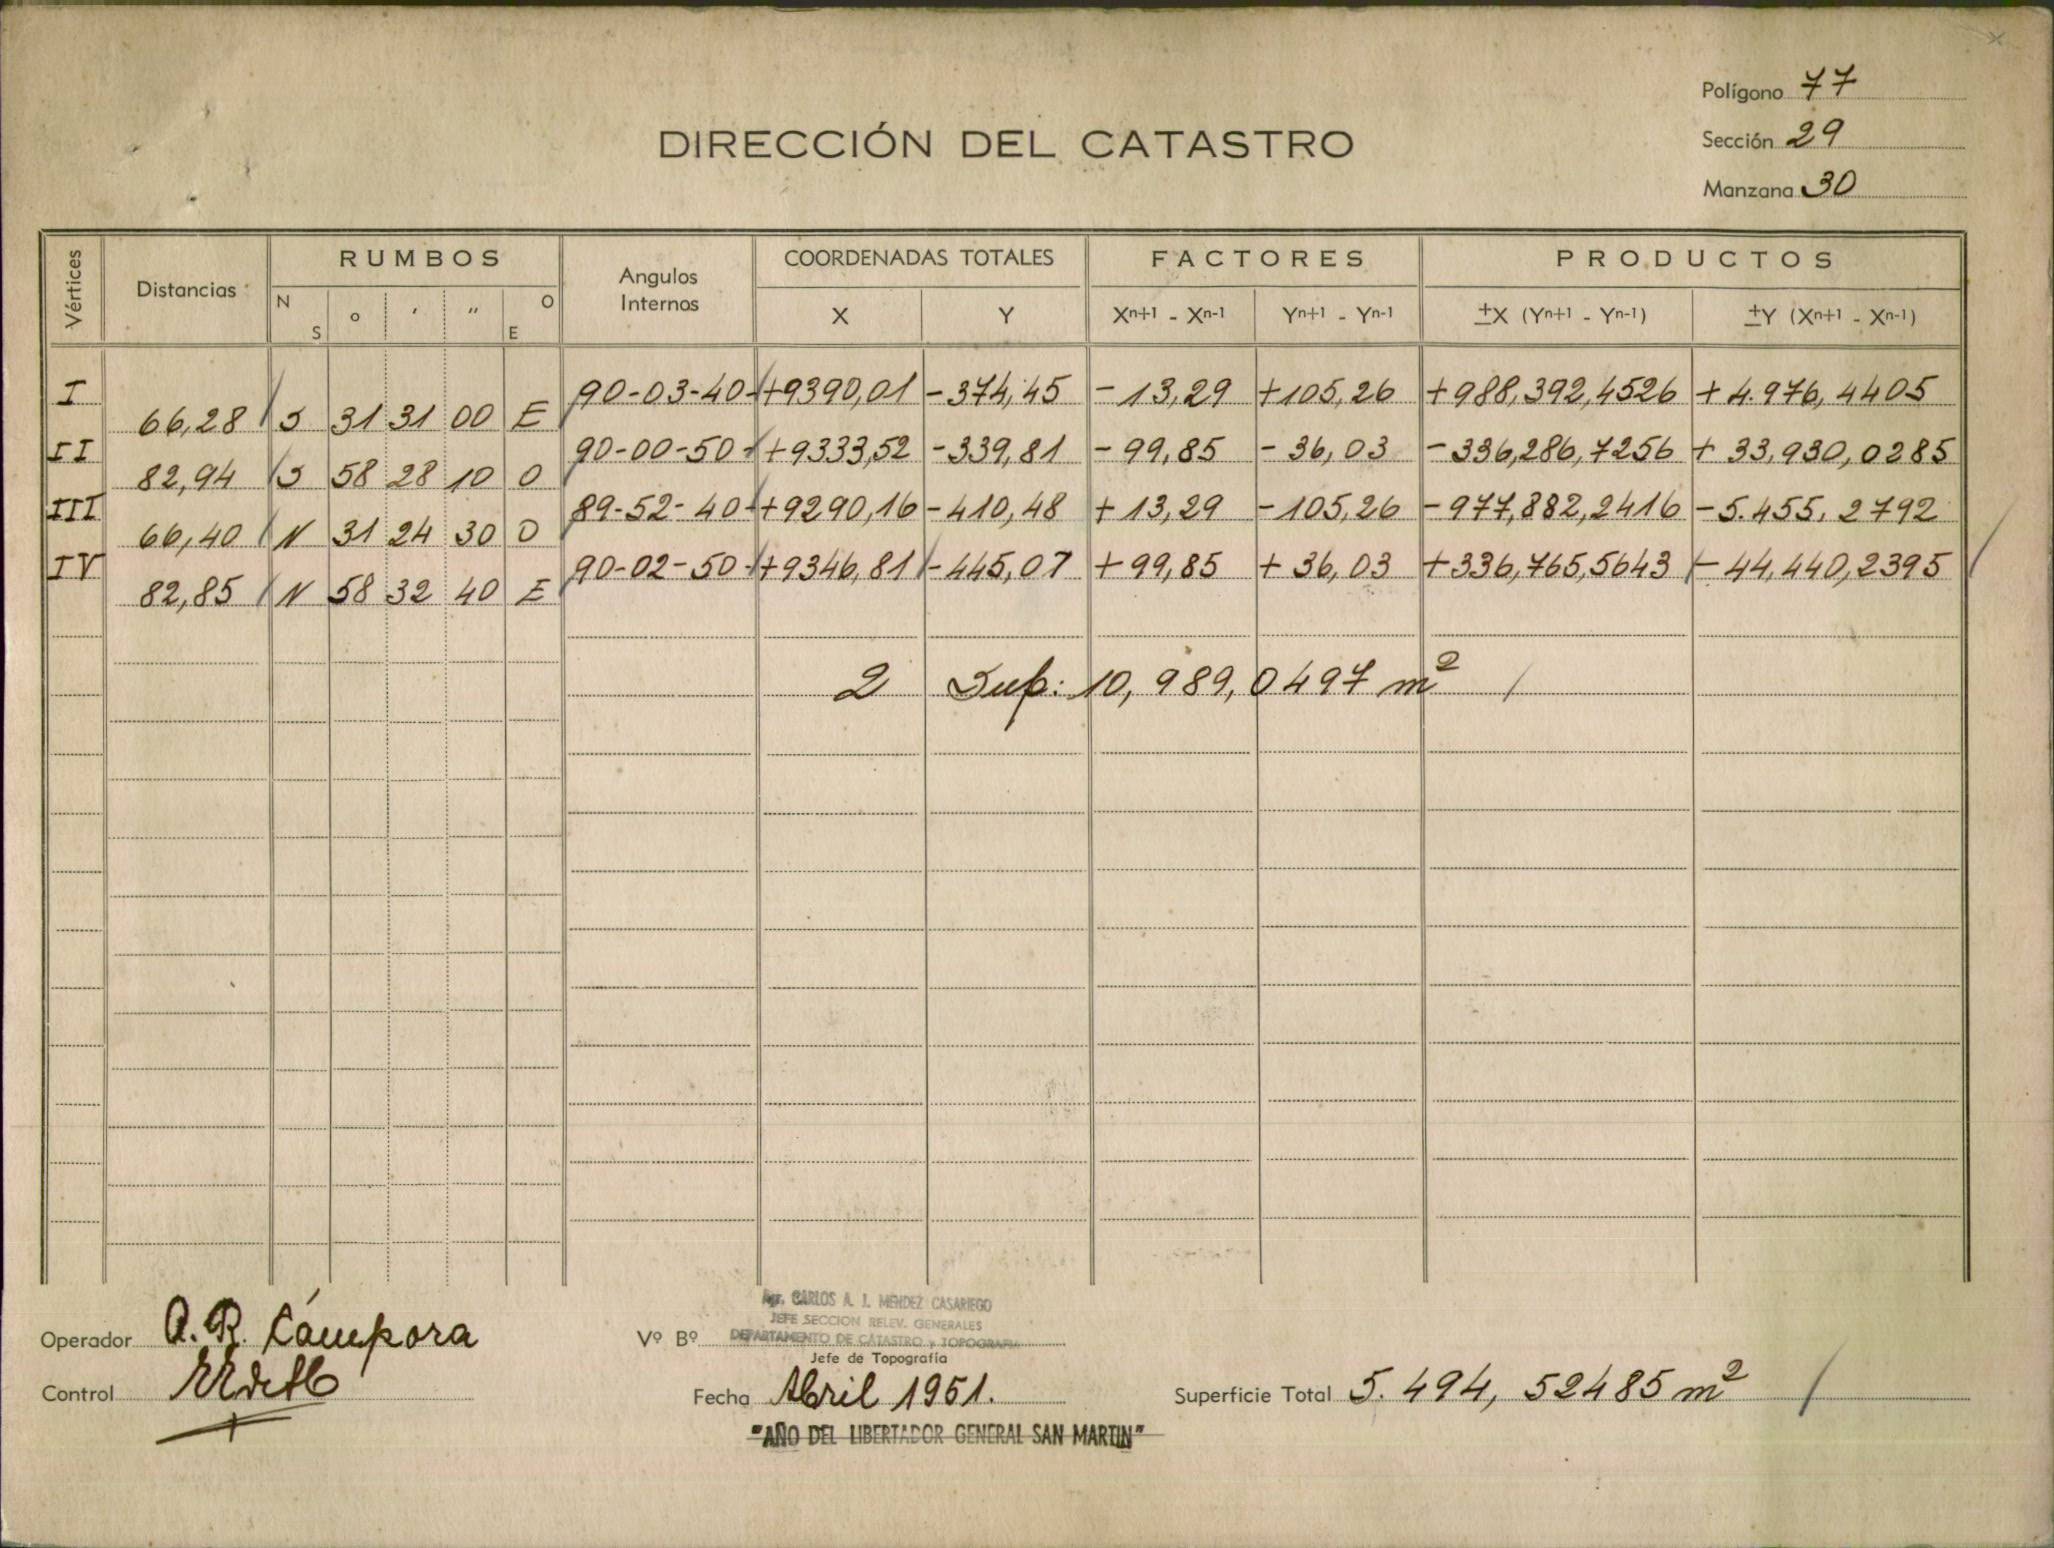 Polígono 77
DIRECCIÓN DEL CATASTRO
Sección 29
Manzana 30
Vértices Distancias RUMBOS Angulos Internos COORDENADAS TOTALES FACTORES PRODUCTOS
N S ° ' " O E X Y Xn+1 - Xn-1 Yn+1 - Yn-1 ±X (Yn+1 - Yn-1) ±Y (Xn+1 - Xn-1)
I 90-03-40 +9390,01 -374,45 -13,29 +105,26 +988,392,4526 +4.976,4405
66,28 S 31 31 00 E
II 90-00-50 +9333,52 -339,81 -99,85 -36,03 -336,286,7256 +33,930,0285
82,94 S 58 28 10 O
III 89-52-40 +9290,16 -410,48 +13,29 -105,26 -977,882,2416 -5.455,2792
66,40 N 31 24 30 O
IV 90-02-50 +9346,81 -445,07 +99,85 +36,03 +336,765,5643 -44,440,2395
82,85 N 58 32 40 E
2 Sup: 10,989,0497 m²
Operador A.R. Cámpora
Vº Bº
Agr. CARLOS A. J. MENDEZ CASARIEGO
JEFE SECCION RELEV. GENERALES
DEPARTAMENTO DE CATASTRO y TOPOGRAFIA
Jefe de Topografía
Control
Fecha Abril 1951.
Superficie Total 5.494,52485 m²
"AÑO DEL LIBERTADOR GENERAL SAN MARTIN"